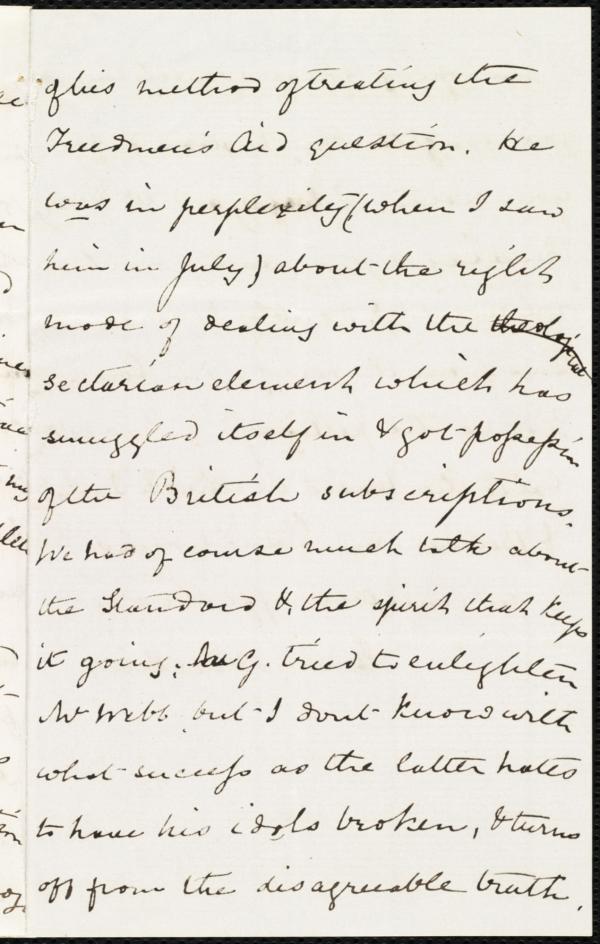 of his method of treating the
Freedmen's Aid question. He
was in perplexity (when I saw
him in July) about the right
mode of dealing with the theological
sectarian element which has
smuggled itself in & got possession
of the British subscriptions.
We had of course much talk about
the Standard & the spirit that keeps
it going. Mr G. tried to enlighten
Mr Webb but I dont know with
what success as the latter hates
to have his idols broken, & turns
off from the disagreeable truth.